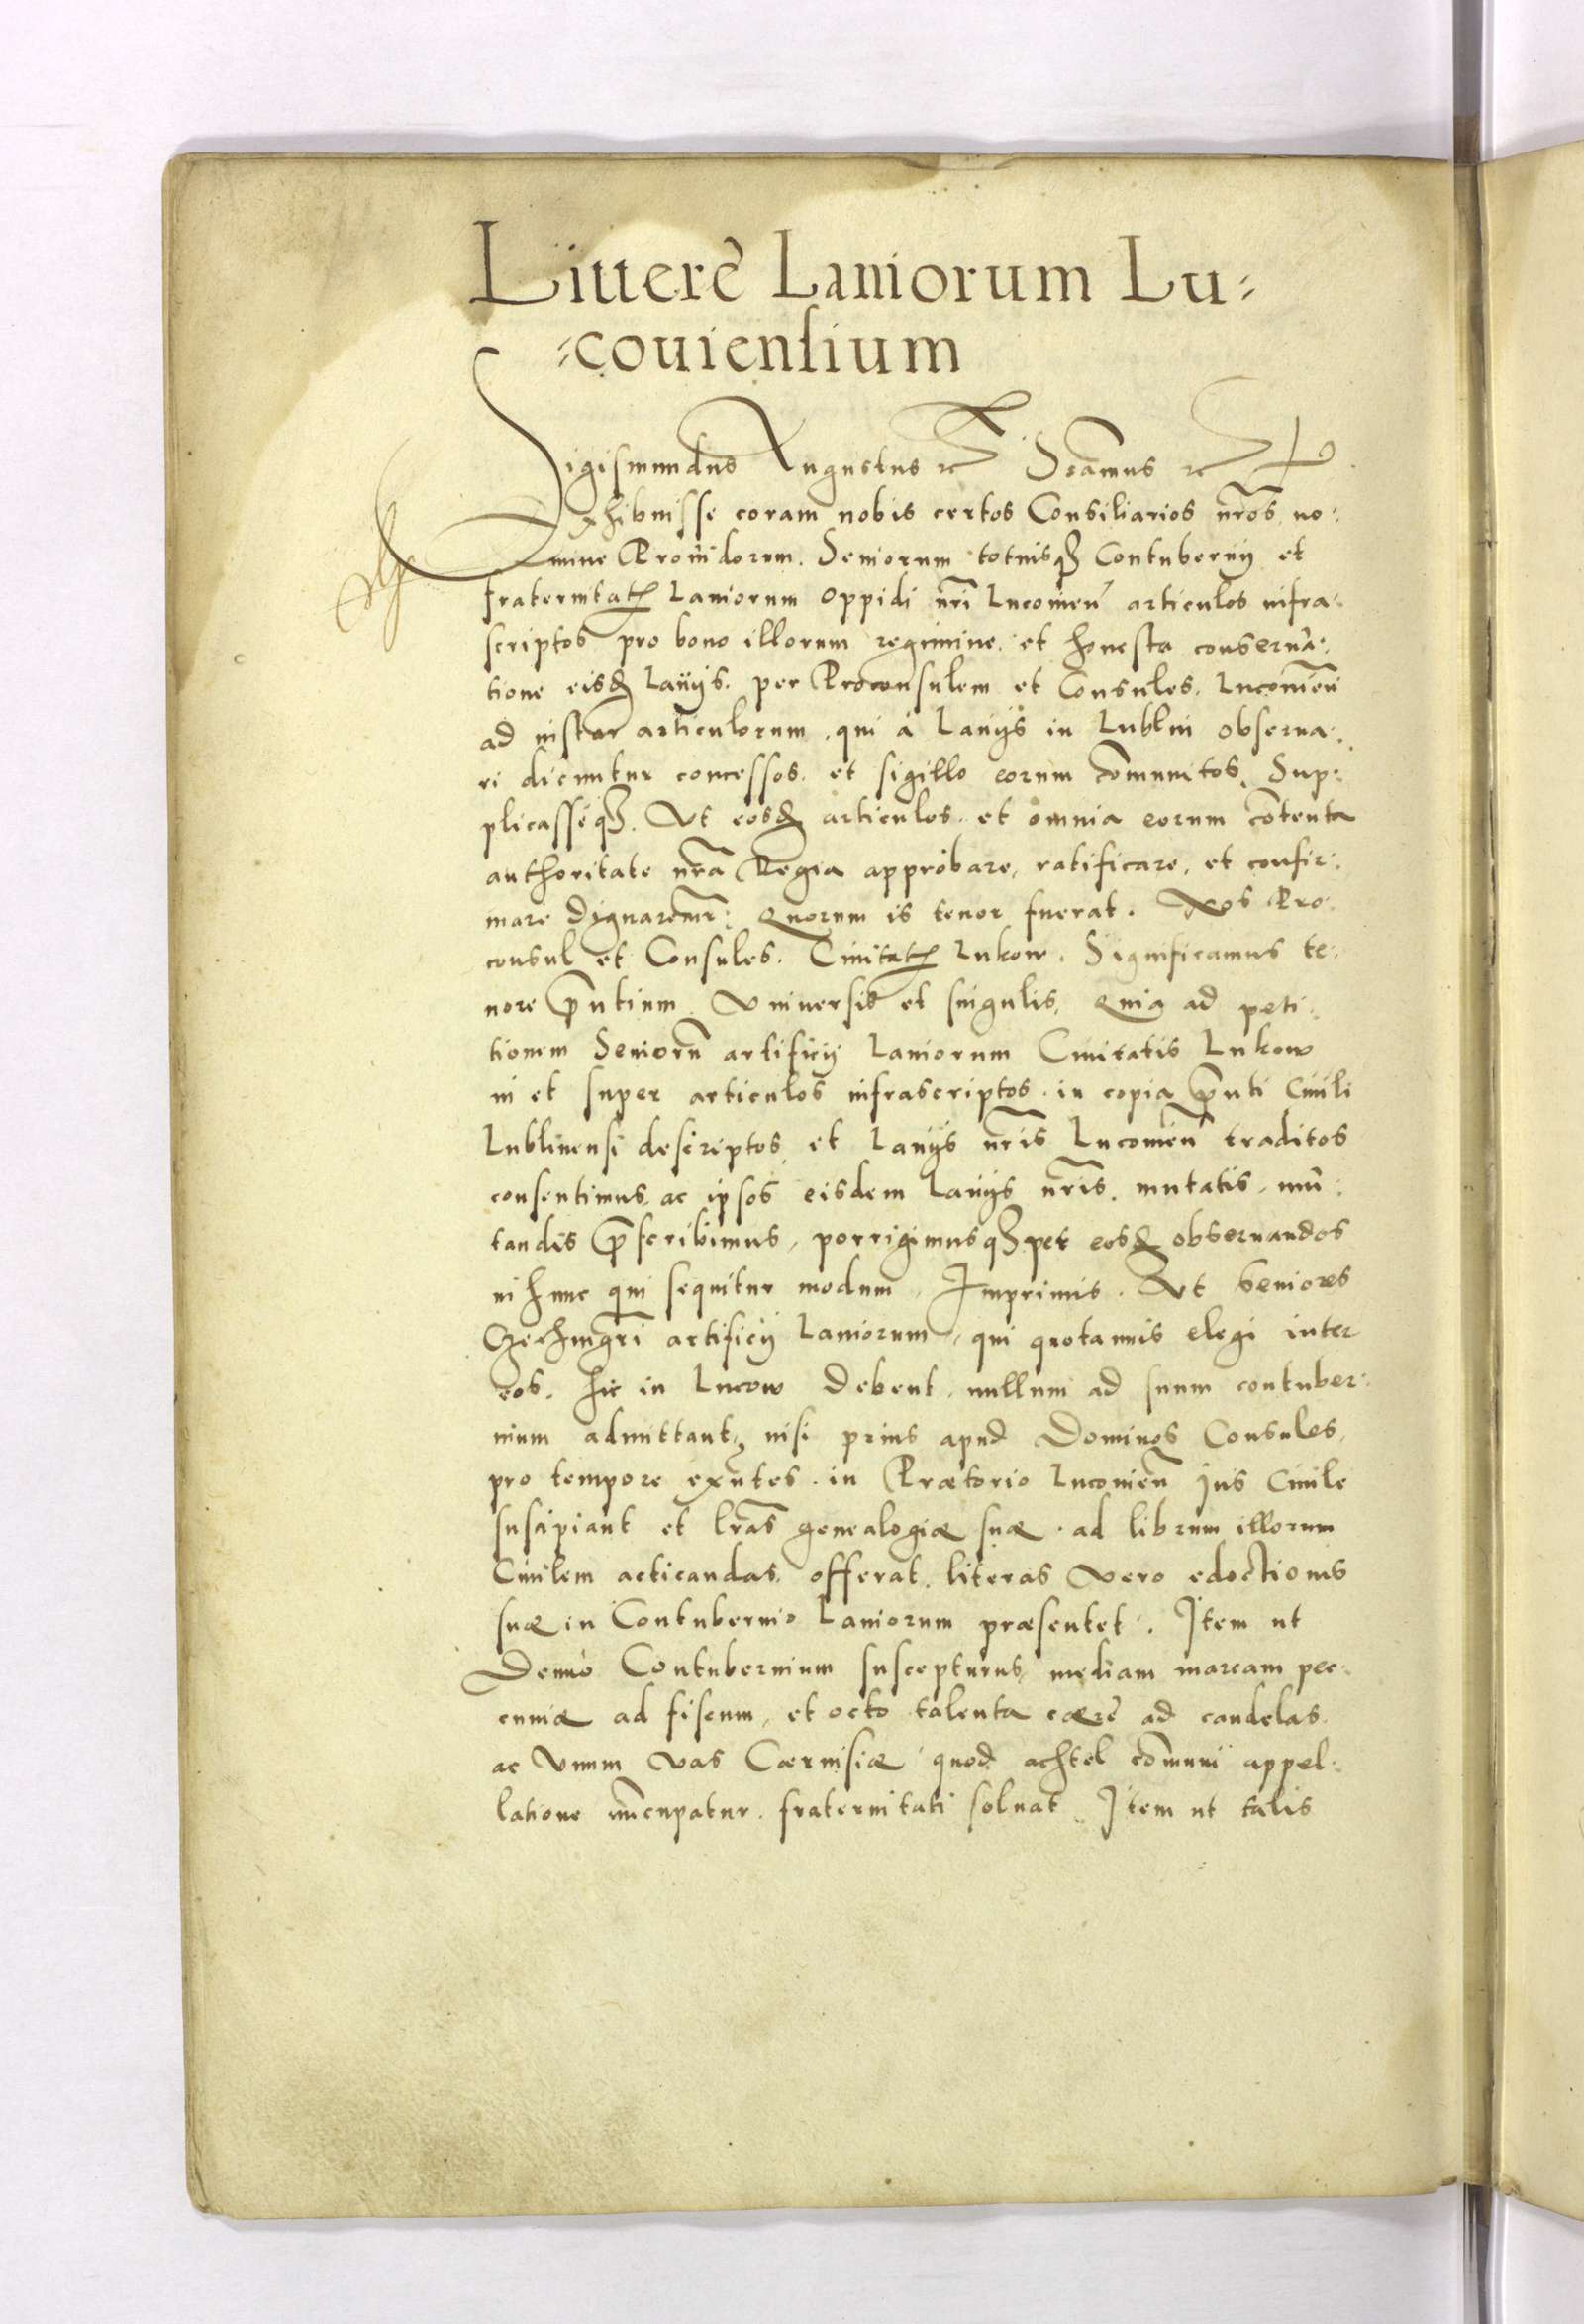 Litterę Laniorum Lu=
=couiensium
Sigismundus Augustus etc Scamus etc
Exhibuisse coram nobis certos Consiliarios nr̃os no:
mine Prouidorum. Seniorum totiusqꝫ Contubernij et
fraternitatis Laniorum oppidi nr̃i Lucouien̄ articulos infra:
scriptos pro bono illorum regimine. et honesta conserua:
tione eisd Lanijs. per Proconsulem et Consules. Lucouien̄
ad instar articulorum. qui à Lanijs in Lublin obserua:
ri dicuntur concessos. et sigillo eorum com̄unitos. Sup:
plicasseqꝫ. Vt eosd articulos. et omnia eorum cōtenta
authoritate nr̃a Regia approbare, ratificare, et confir:
mare dignaremr̃: Quorum is tenor fuerat. Nos Pro:
consul et Consules. Ciuitatis Lukow. Significamus te:
nore p̄ntium Vniuersis et singulis, Quia ad peti:
tionem Seniorū artificij Laniorum Ciuitatis Lukow
in et super articulos infrascriptos. in copia p̄nti Ciuili
Lublinensi descriptos, et Lanijs nr̃is Lucouien̄ traditos
consentimus, ac ipsos eisdem Lanijs nr̃is. mutatis, mu:
tandis p̄scribimus, porrigimusqꝫ per eosd obseruandos
in hunc qui sequitur modum, Imprimis. Vt Seniores
Czechmgr̃i artificij Laniorum, qui quotannis elegi inter
eos. hic in Lucow debent, nullum ad suum contuber:
nium admittant, nisi prius apud Dominos Consules,
pro tempore exn̄tes. in Prætorio Lucouien̄ Jus Ciuile
suscipiant et lr̃as genealogiæ suæ. ad librum illorum
Ciuilem acticandas. offerat. literas vero edoctionis
suæ in Contubernio Laniorum præsentet. Item ut
Denuò Contubernium suscepturus, mediam marcam pec:
cuniæ ad fiscum, et octo talenta cæræ ad candelas.
ac Vnum vas Cæruisiæ quod achtel com̄uni appel:
latione nūcupatur. fraternitati soluat. Item ut talis